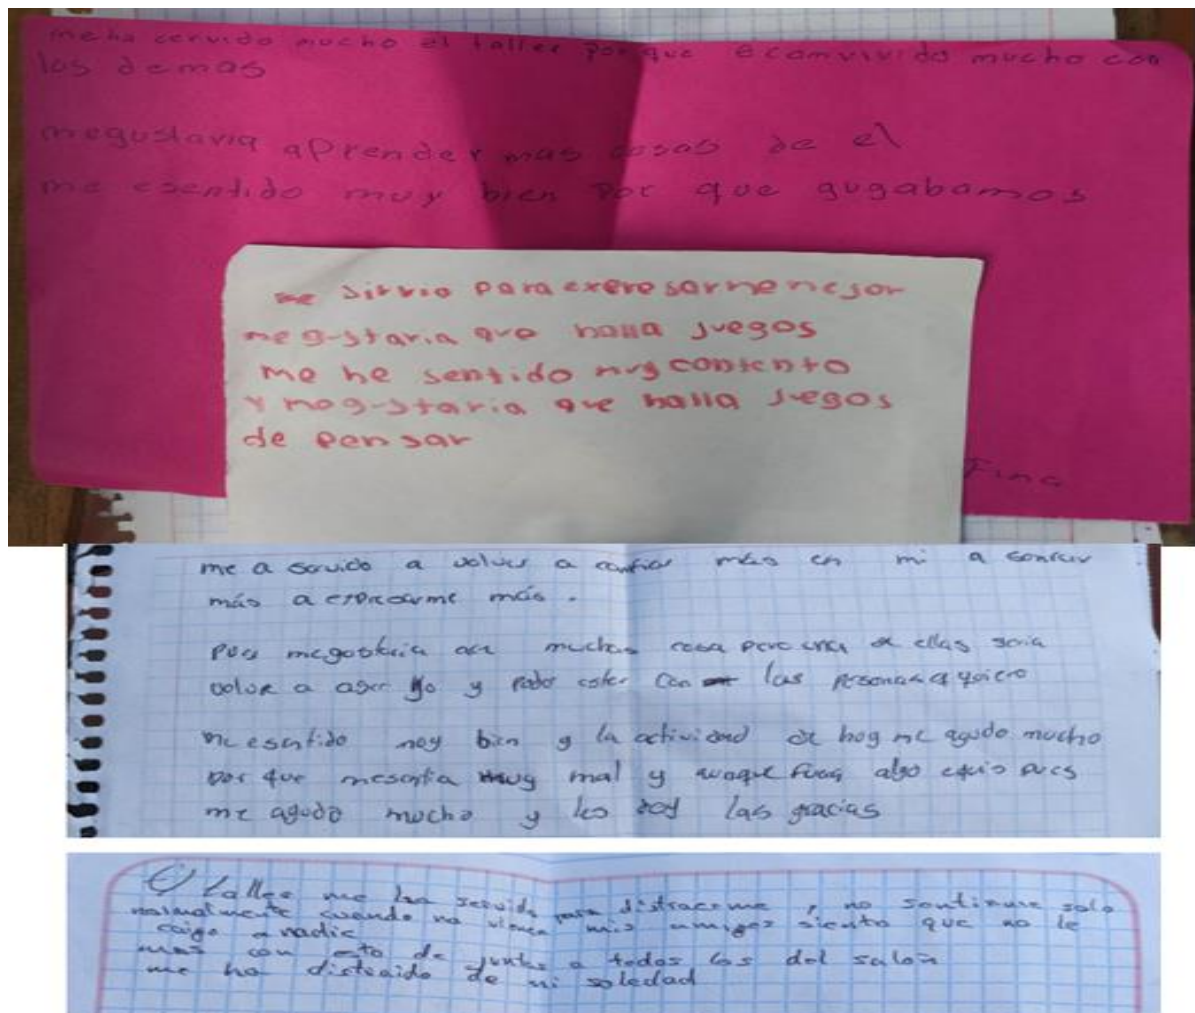 me ha servido mucho el taller por que e comvivido mucho con
los demas
megustaria aprender mas cosas de el
me esentido muy bien por que gugabamos
me sirvio para expresarme mejor
me gustaria que halla juegos
me he sentido muy contento
y me gustaria que halla juegos
de pensar
Fina
me a servido a volver a confiar más en mi a
más a expresarme más.
pues megustaria muchas cosa pero una de ellas seria
volver a aser yo y poder estar con las personas q quiero
me esentido moy bien y la actividad de hoy me agudo mucho
por que mesentia muy mal y aunque fuera algo pues
me agudo mucho y les doy las gracias
El taller me ha servido para distraerme, no sentirme solo
normalmente cuando no vienen mis amigos siento que no le
caigo a nadie
mas con esto de juntar a todos los del salon
me ha distraido de mi soledad